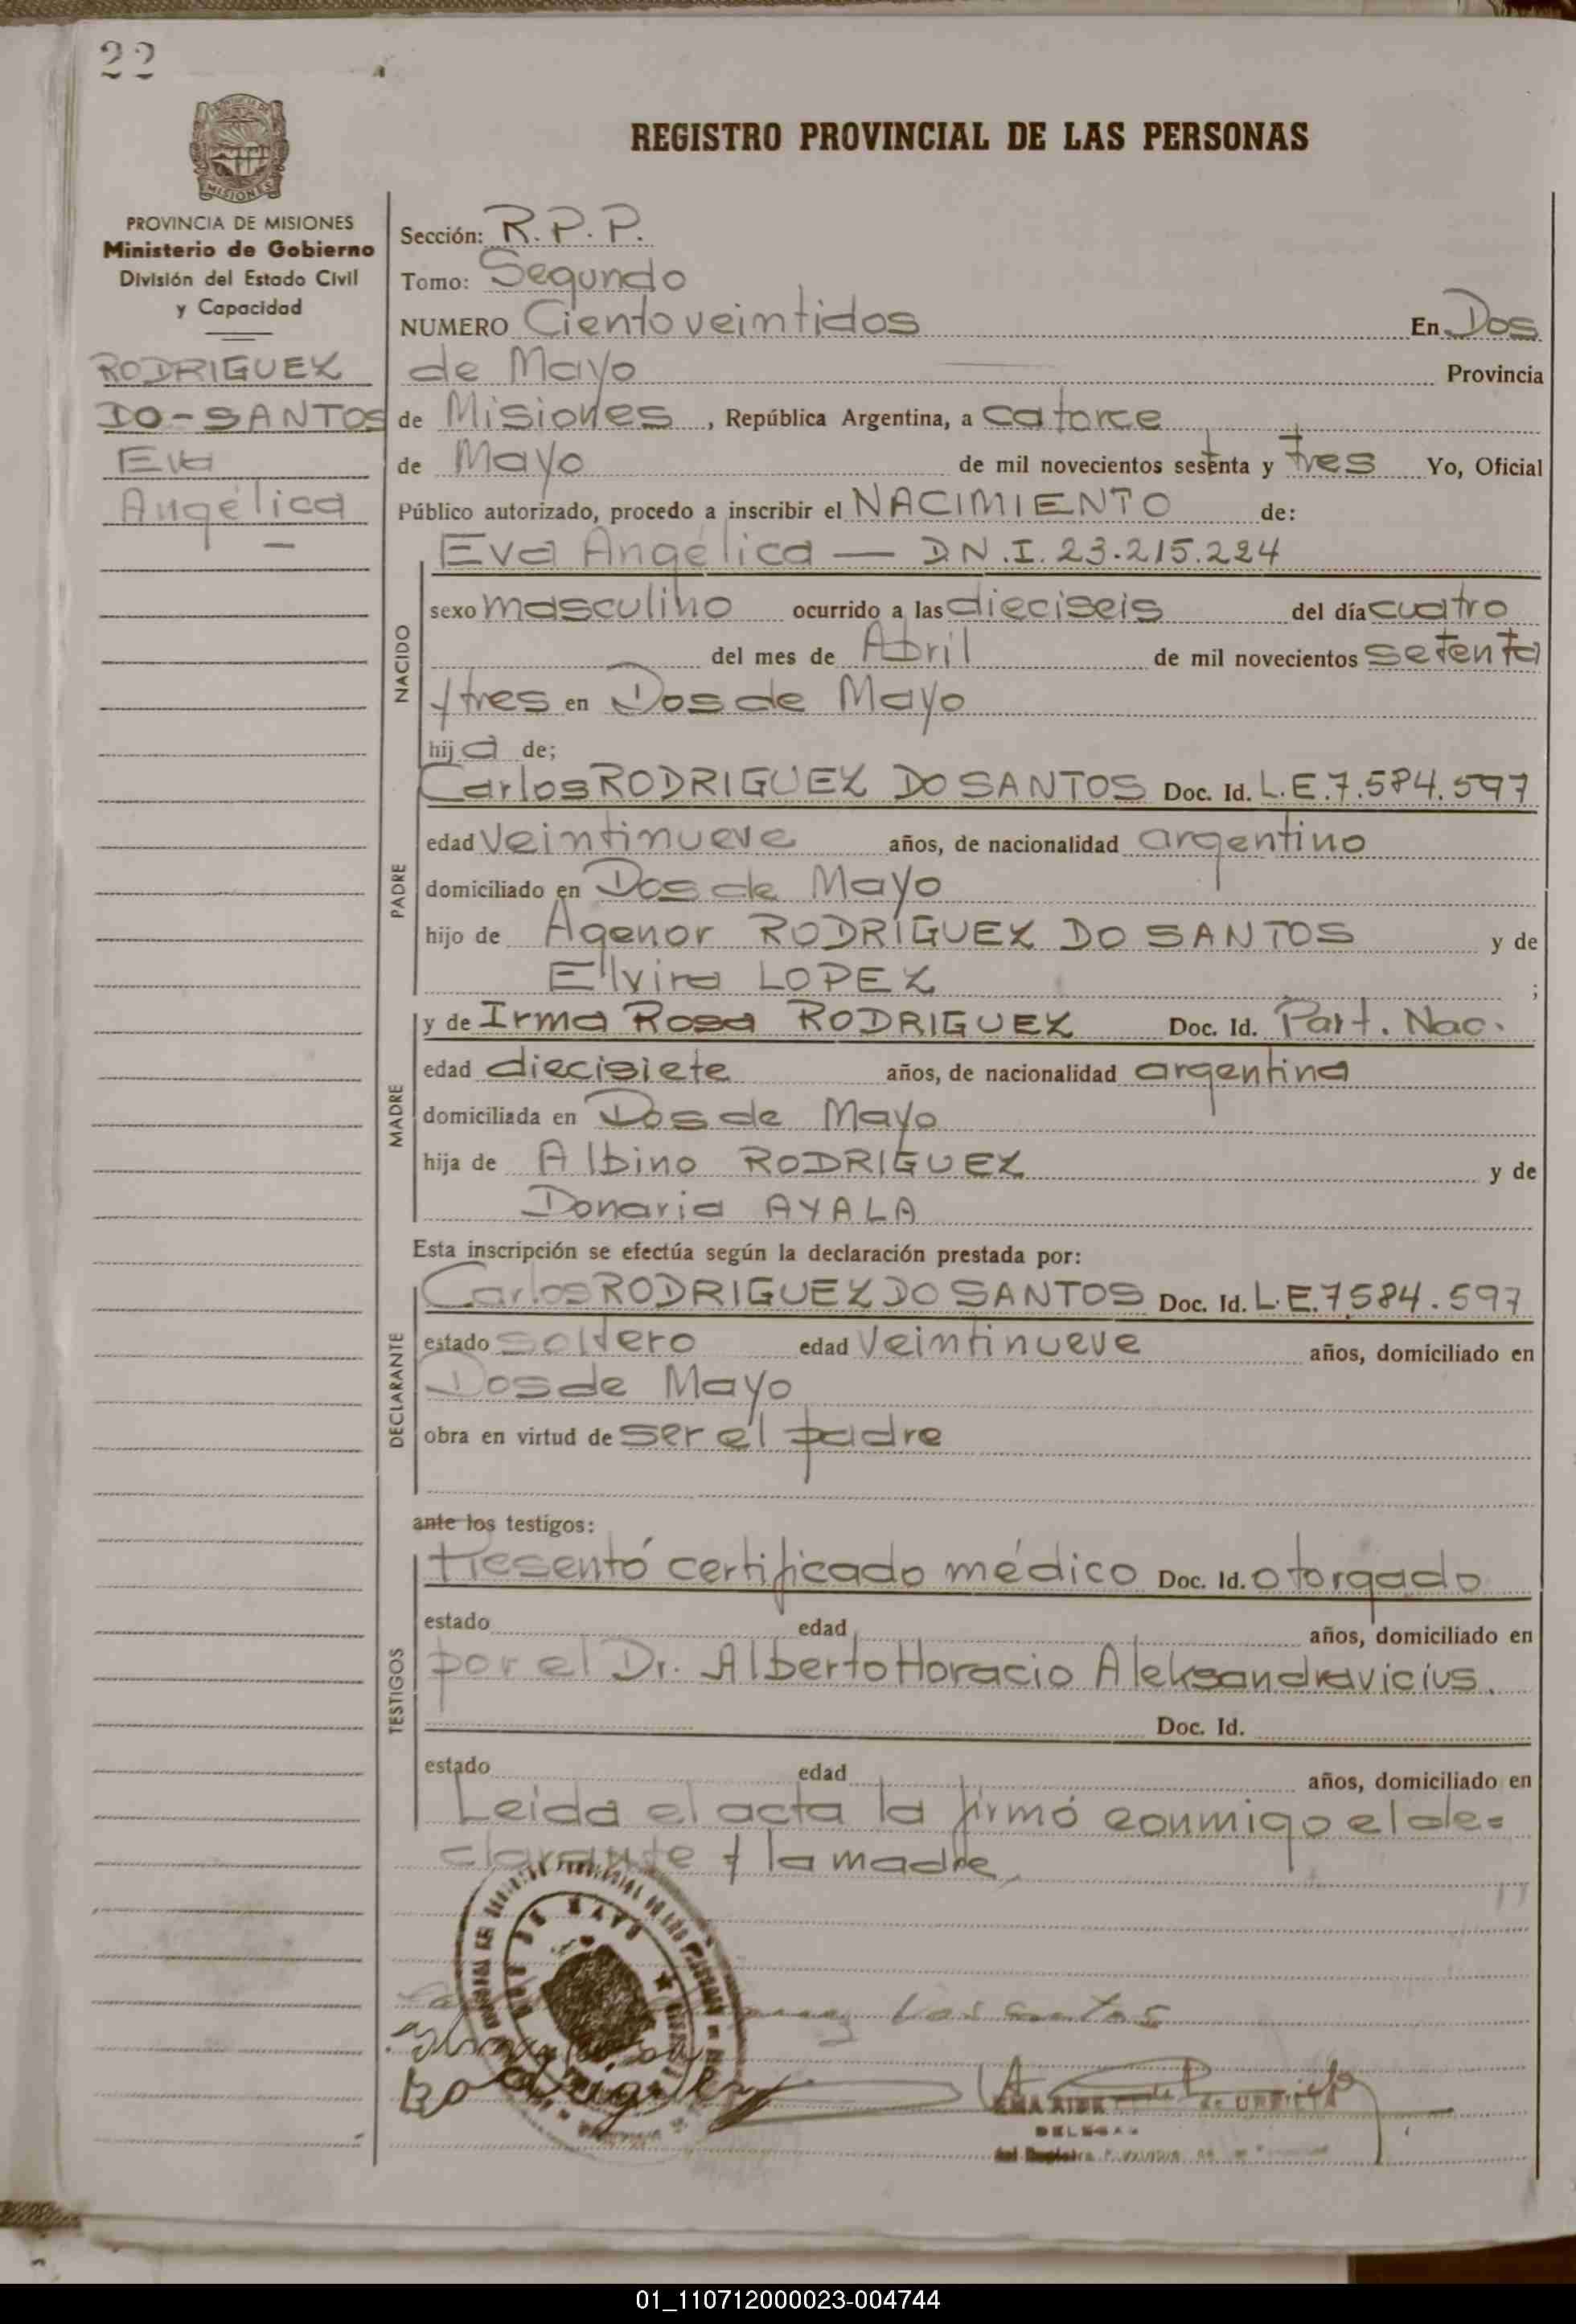 22
REGISTRO PROVINCIAL DE LAS PERSONAS
MISIONES
PROVINCIA DE MISIONES
Ministerio de Gobierno
División del Estado Civil
y Capacidad
RODRIGUEZ
DO-SANTOS
Eva
Angélica
Sección: R.P.P.
Tomo: Segundo
NUMERO Ciento veintidos En Dos
de Mayo Provincia
de Misiones, República Argentina, a catorce
de Mayo de mil novecientos sesenta y tres Yo, Oficial
Público autorizado, procedo a inscribir el NACIMIENTO de:
Eva Angélica — D.N.I. 23.215.224
NACIDO
sexo masculino ocurrido a las dieciseis del día cuatro
del mes de Abril de mil novecientos setenta
y tres en Dos de Mayo
hija de;
PADRE
Carlos RODRIGUEZ DO SANTOS Doc. Id. L.E.7.584.597
edad veintinueve años, de nacionalidad argentino
domiciliado en Dos de Mayo
hijo de Agenor RODRIGUEZ DO SANTOS y de
Elvira LOPEZ ;
MADRE
y de Irma Rosa RODRIGUEZ Doc. Id. Part. Nac.
edad diecisiete años, de nacionalidad argentina
domiciliada en Dos de Mayo
hija de Albino RODRIGUEZ y de
Donaria AYALA
Esta inscripción se efectúa según la declaración prestada por:
DECLARANTE
Carlos RODRIGUEZ DO SANTOS Doc. Id. L.E.7584.597
estado soltero edad veintinueve años, domiciliado en
Dos de Mayo
obra en virtud de ser el padre
ante los testigos:
TESTIGOS
Presentó certificado médico Doc. Id. otorgado
estado edad años, domiciliado en
por el Dr. Alberto Horacio Aleksandravicius.
Doc. Id.
estado edad años, domiciliado en
Leida el acta la firmó conmigo el de-
clarante y la madre
DOS DE MAYO
dos santos
Rodriguez
de URRIETA
del Registro
01_110712000023-004744